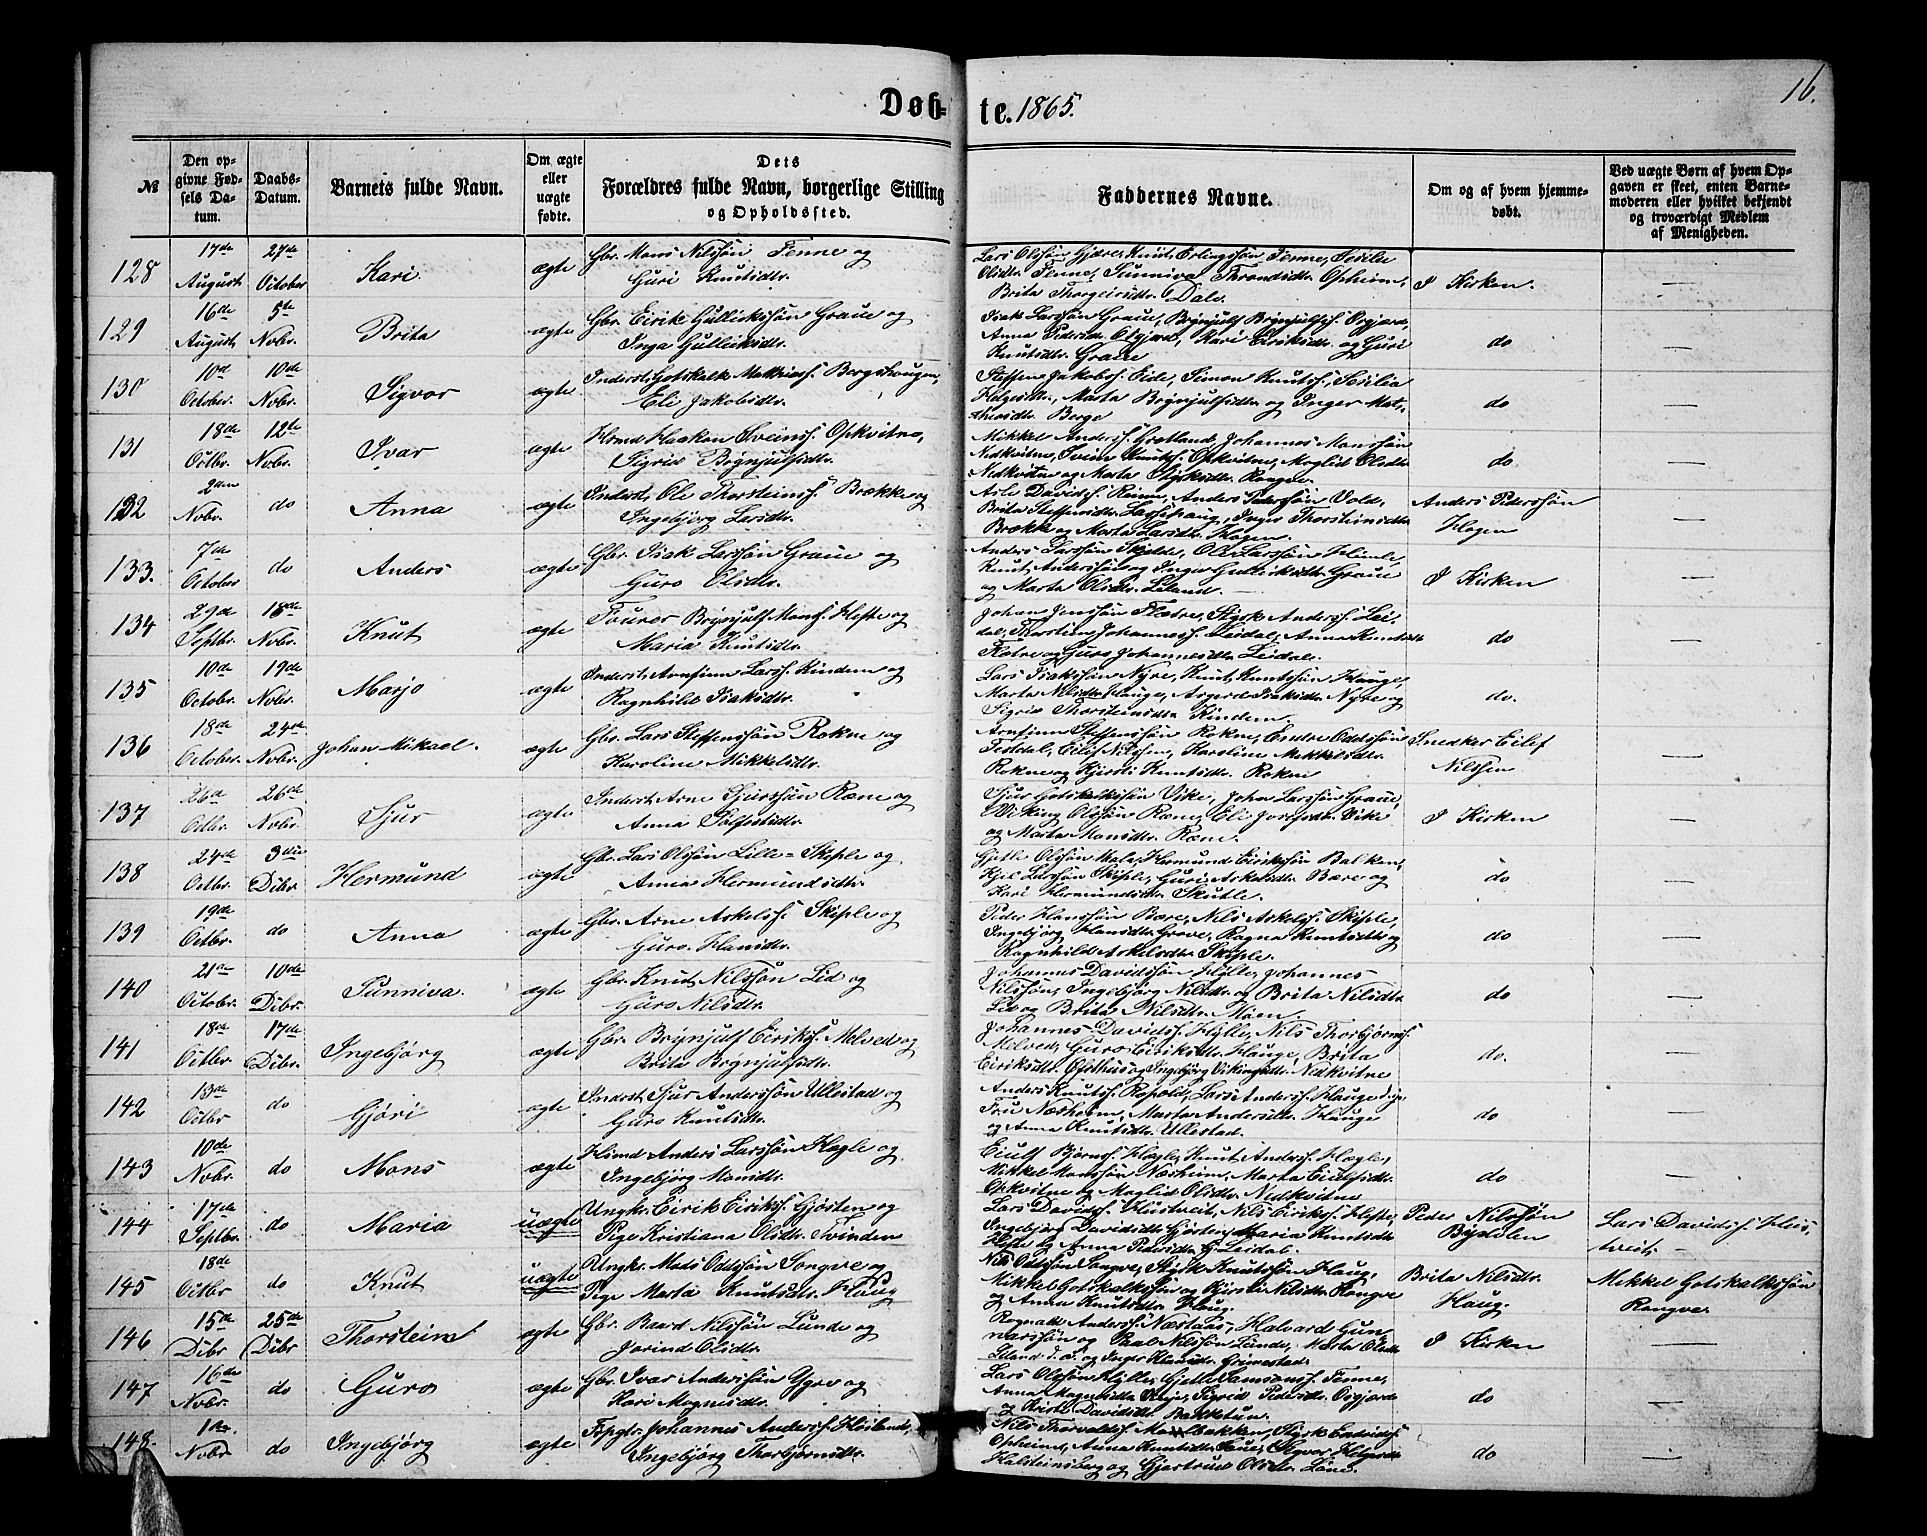 Døb-
te. 1865.
16.
№
Den op-
givne Fød-
sels Da-
tum.
Daabs-
Datum.
Barnets fulde Navn.
Om ægte
eller
uægte
fødte.
Dets
Forældres fulde Navn, borgerlige Stilling
og Opholdssted.
Faddernes Navne.
Om og af hvem hjemme-
døbt.
Ved uægte Børn af hvem Op-
gaven er skeet, enten Barne-
moderen eller hvilket bekjendt
og troværdigt Medlem
af Menigheden.
128 17de August 27de October Kari ægte Gbr. Mons Nilssøn Fenne og
Guri Knutsdtr.
Lars Olssøn Gjære, Knut Erlingssøn Fenne, Sesilia
Olsdtr. Fenne, Sunniva Throndsdtr. Opheim,
Brita Thorgeirsdtr. Dale
I Kirken.
129 16de August 5te Novbr. Brita ægte Gbr. Eirik Gullickssøn Graue og
Inga Gulleiksdtr.
Isak Larssøn Graue, Brynjulf Brynjulfs.
Anna Pedersdtr. Kari Eiriksdtr. og Guri
Knutsdtr. Graue
do
130 10de October 10de Novbr. Sigvor ægte Inderst, Gotskalk Mathias. Bergshaugen,
Eli Jakobsdtr.
Steffen Jakobss. Eide, Simon Knutss., Sesilia
Helgesdtr., Marta Brynjulfsdtr. og Inger Mat-
thiasdtr. Berge
do
131 18de Octbr. 12te Novbr. Ivar ægte Hmd Haakon Sveinss. Opkvitne,
Sigrid Brynjulfsdtr.
Mikkel Anderss. Grotland, Johannes Monssøn
Nedkvitne, Svein Knutss. Opkvitne, Maglid Olsdtr.
Nedkvitne og Marta Styrksdtr. Rongve
do
132 2den Novbr. do Anna ægte Inderst, Ole Thorsteinss. Brække og
Ingebjorg Larsdtr.
Arle Davids. Rinne, Anders Pederssøn Vold,
Brita Steffensdtr. Inger Thorsteinsdtr.
Brække og Marta Larsdtr. Hagen
Anders Pederssøn
Hagen
133. 7de October do Anders ægte Gbr. Isak Larssøn Graue og
Guro Olsdtr.
Anders Larssøn Skjelde, Ole Larssøn Himle,
Knut Anderssøn og Inger Gulleiksdtr. Graue
og Marta Olsdtr. Liland.
I Kirken
134 29de Septbr. 18de Novbr. Knut ægte Fourer Brynjulf Monss. Hefte og
Maria Knutsdtr.
Johan Jenssøn Flatre, Styrk Anderss. Lei-
dal, Thorstein Johanness. Leidal, Anna Knutsdtr
Flatre og Guro Johannesdtr. Leidale.
do
135 10de October. 19de Novbr. Marjo ægte Inderst, Arnfinn Larss. Kindem og
Ragnhild Isaksdtr.
Lars Isakssøn Nyre, Knut Knutssøn Hauge,
Marta Nilsdtr. Hauge, Isaksdtr. Nyre og
Sigrid Thorsteinsdtr. Kindem.
do.
136 18de October. 24de Novbr. Johan Mikael. ægte Gbr. Lars Steffenssøn Rokne og
Karoline Mikkelsdtr.
Arnfinn Steffenssøn Rokne, Endre Oddssøn
Eilif Nilssen, Karoline Mikkelsdtr.
Rokne og Kjersti Knutsdtr. Rokne
Snedker Eilef
Nilssen
137 26de Octbr. 26de Novbr. Sjur ægte Inderst, Arne Sjurssøn Rene og
Anna
Sjur Gotskalkssøn Vike, John Larssøn Graue,
Viking Olssøn Rene, Eli Vike
og Marta Monsdtr. Rene
I Kirken
138 24de Octbr. 3die Dcbr. Hermund ægte Gbr. Lars Olssøn Lille-Skiple og
Anna Hermundsdtr.
Gjetle Olssøn Hermund Eirikssøn Balken,
Kjel Larssøn Skiple, Guri Askelsdtr. Bære og
Kari Hermundsdtr. Skutle.
do
139 19de Octbr. do Anna ægte Gbr. Arne Askelss. Skiple og
Guro Hansdtr.
Peder Hanssøn Bære, Nils Askelss. Skiple,
Ingebjørg Hansdtr. Grove, Ragna Knutsdtr. og
Ragnhild Askelsdtr. Skiple.
do
140 21de Octobr. 10de Dcbr. Sunniva. ægte Gbr. Knut Nilssøn Lid og
Guro Nilsdtr.
Johannes Davidssøn Hylle, Johannes
Nilssøn, Ingebjørg Nilsdtr. og Brita Nilsdtr.
Lid og Brita Nilsdtr. Moen
do
141 18de Octbr. 17de Dcbr. Ingebjørg ægte Gbr. Brynjulf Eirikss. Melved og
Brita Brynjulfsdtr.
Johannes Davidss. Hylle, Nils Thorbjørns.
Melved, Guro Eiriksdtr. Hauge, Brita
Eiriksdtr. og Ingebjørg Vikingsdtr. Nedkvitne
do.
142 13de Octbr do Gjøri ægte Inderst Sjur Anderssøn Ullestad og
Guro Knutsdtr.
Anders Knutss. Rokold, Lars Anderss. Hauge
Fru Næsheim, Marta Andersdtr. Hauge
og Anna Knutsdtr. Ullestad.
do
143 10de Novbr. do Mons ægte Hmd Anders Larssøn Hægle og
Ingebjørg Monsdtr.
Eiulf Bjørnss. Hægle, Knut Anderss. Hægle,
Mikkel Monssøn Næsheim, Marta Eiulfsdtr.
Opkvitne og Maglid Olsdtr. Nedkvitne
do
144 17de Septbr. do Maria uægte Ungkr. Eirik Eirikss. Gjøsten og
Pige Kristiana Olsdtr. Tvinden
Lars Davidss. Nils Eirikss. Hefte,
Ingebjørg Davidsdtr. Maria Knutsdtr.
Hefte og Anna Pedersdtr. Leidal.
Peder Nilssøn
Lars Davidss. Hus-
tveit,
145 18de Octbr do Knut uægte Ungkr. Mads Oddssøn Songve og
Pige Marta Knutsdtr. Haug
Nils Oddssøn Songve, Styrk Knutssøn Haug,
Mikkel Gotskalkssøn og Nilsdtr. Rongve
og Anna Knutsdtr. Haug.
Brita Nilsdtr.
Haug.
Mikkel Gotskalkssøn
Rongve
146 15de Dcbr. 25de Dcbr Thorstein ægte Gbr. Baard Nilssøn Lunde og
Jorind Olsdtr.
Rognald Anderss. Halvard Gun-
narssøn og Paul Nilssøn Lunde, Marta Olsdtr.
Liland og Inger Hansdtr. Grimestad.
I Kirken
147 16de Novbr. do Guro ægte Gbr. Ivar Anderssøn Ygre og
Kari Magnesdtr.
Lars Olssøn Hylle, Gjetle Samsons. Fenne,
Anna Magnesdtr. Sigrid Pedersdtr.
og Davidsdtr. Bakketun.
do
148. 1ste Novbr do Ingebjørg ægte Johannes Anderss.
Ingebjørg Thorbjørnsdtr.
Nils Thorvaldss. Styrk
Opheim, Anna Knutsdtr. Sigvor Helgesdtr.
Halsteinsberg og Gjertrud Olsdtr. Løne.
do